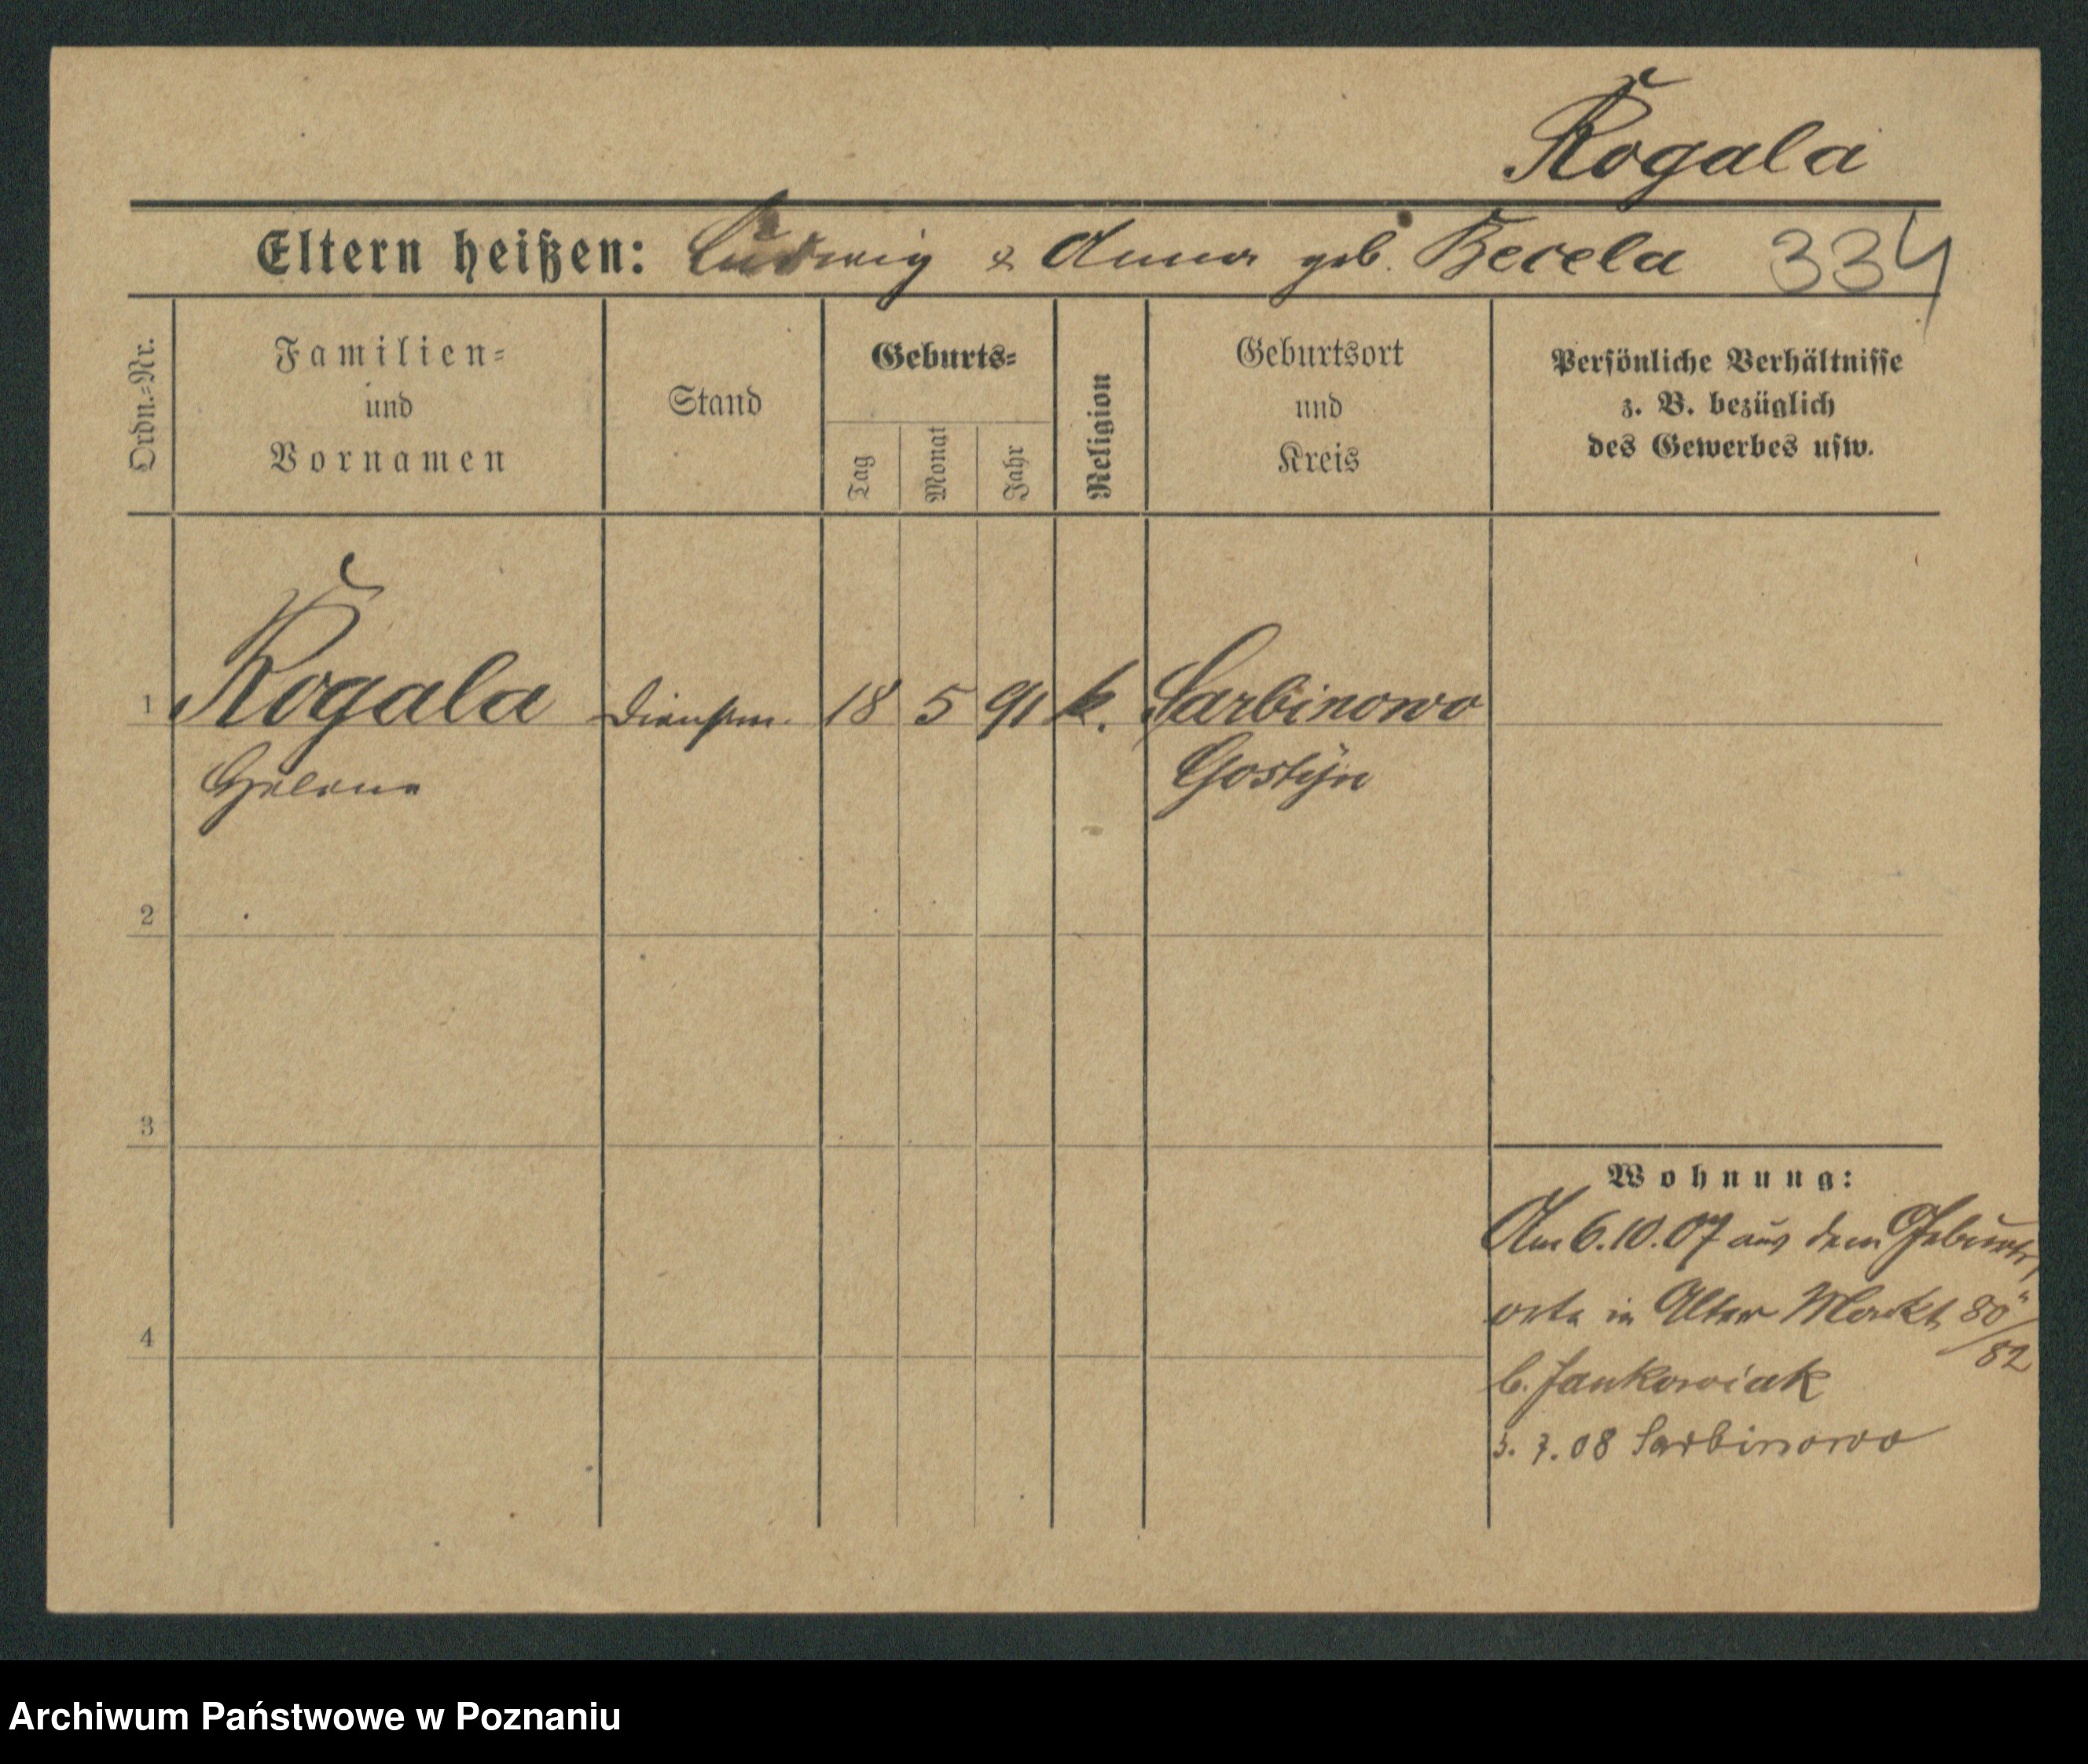 Rogala
Eltern heißen: Ludwig & Anna geb. Becela 334
Ordn.-Nr.
Familien-
und
Vornamen
Stand
Geburts-
Tag
Monat
Jahr
Religion
Geburtsort
und
Kreis
Persönliche Verhältnisse
z. B. bezüglich
des Gewerbes usw.
1 Rogala Dienstm. 18 5 91 k. Sarbinowo
Helene Gostyn
2
3
4
Wohnung:
Am 6.10.07 aus dem Geburts
orte in Alter Markt 80
/82
b. Jankowiak
3. 7. 08 Sarbinowo
Archiwum Państwowe w Poznaniu